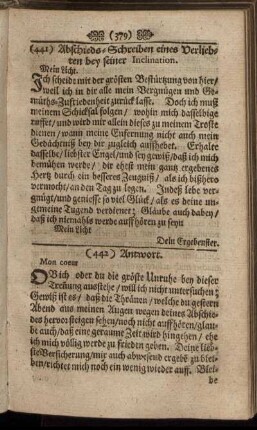 (379)
(441) Abschieds-Schreiben eines Verlieb-
ten bey seiner Inclination.
Mein Licht.
Ich scheide mit der grösten Bestürtzung von hier/
weil ich in dir alle mein Vergnügen und Ge-
müths-Zufriedenheit zurück lasse. Doch ich muß
meinem Schicksal folgen/ wohin mich dasselbige
ruffet/ und wird mir allein dieses zu meinem Troste
dienen/ wann meine Enfernung nicht auch mein
Gedächtniß bey dir zugleich aufhebet. Erhalte
dasselbe/ liebster Engel/ und sey gewiß/ daß ich mich
bemühen werde/ dir ehest mein gantz ergebenes
Hertz durch ein besserer Zeugniß/ als ich bißhero
vermocht/ an den Tag zu legen. Indeß lebe ver-
gnügt/ und geniesse so viel Glück/ als es deine un-
gemeine Tugend verdienet; Glaube auch dabey/
daß ich niemahls werde aufhören zu seyn
Mein Licht
Dein Ergebenster.
(442) Antwort.
Mon coeur
OB ich oder du die gröste Unruhe bey dieser
Trennung ausstehe/ will ich nicht untersuchen;
Gewiß ist es/ daß die Thränen/ welche du gestern
Abend aus meinen Augen wegen deines Abschie-
des hervorsteigen sehen/ noch nicht aufhören/ glau-
be auch/ daß eine geraume Zeit wird hingehen/ ehe
ich mich völlig werde zu frieden geben. Deine lieb-
Versicherung/ mir auch abwesend ergebs zu blei-
ben/ richtet mich noch ein wenig wieder auf. Blei-
be